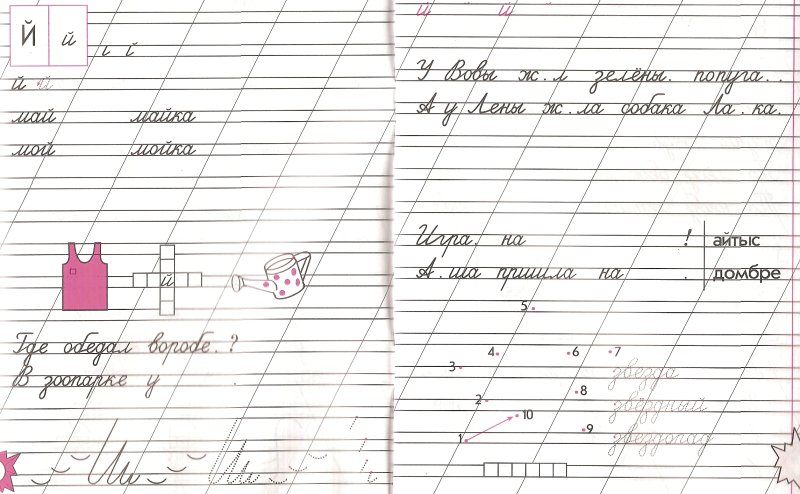 Й й
й й
май майка
мой мойка
й
Где обедал воробе. ?
В зоопарке у .
Ии Ии
й й
У Вовы ж. л зелёны. попуга. .
А у Лены ж. ла собака Ла. ка.
Игра. на ! айтыс
А. ша пришла на . домбре
5
4 6 7
3 звезда
2 8 звёздный
10
1 9 звездопад